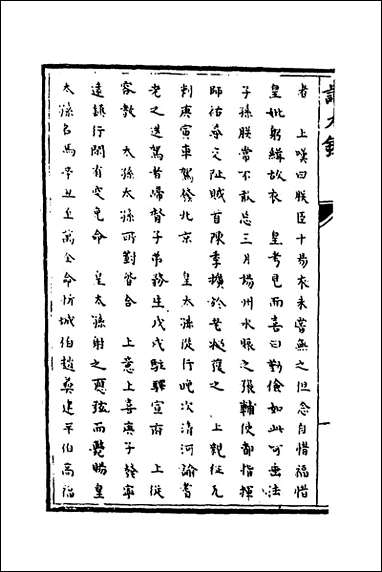 者　上嘆曰朕臣十易衣未嘗無之但念自惜福惜
皇妣躬緝故衣　皇考見而喜曰勤儉如此可垂法
子孫朕常不敢忘三月揚州水賑之張輔使都指揮
師祐等交阯賊首陳季擴於老撾獲之　上親征瓦
剌庚寅車駕發北京　皇太孫從行晚次清河諭耆
老之送駕者歸督子弟務生戊戌駐驛宣府　上從
容教　太孫太孫所對皆合　上意上喜庚子發寧
遠鎮行間有突免命　皇太孫射之應弦而斃賜皇
太孫名馬辛丑至萬全命忻城伯趙彝建平伯高福